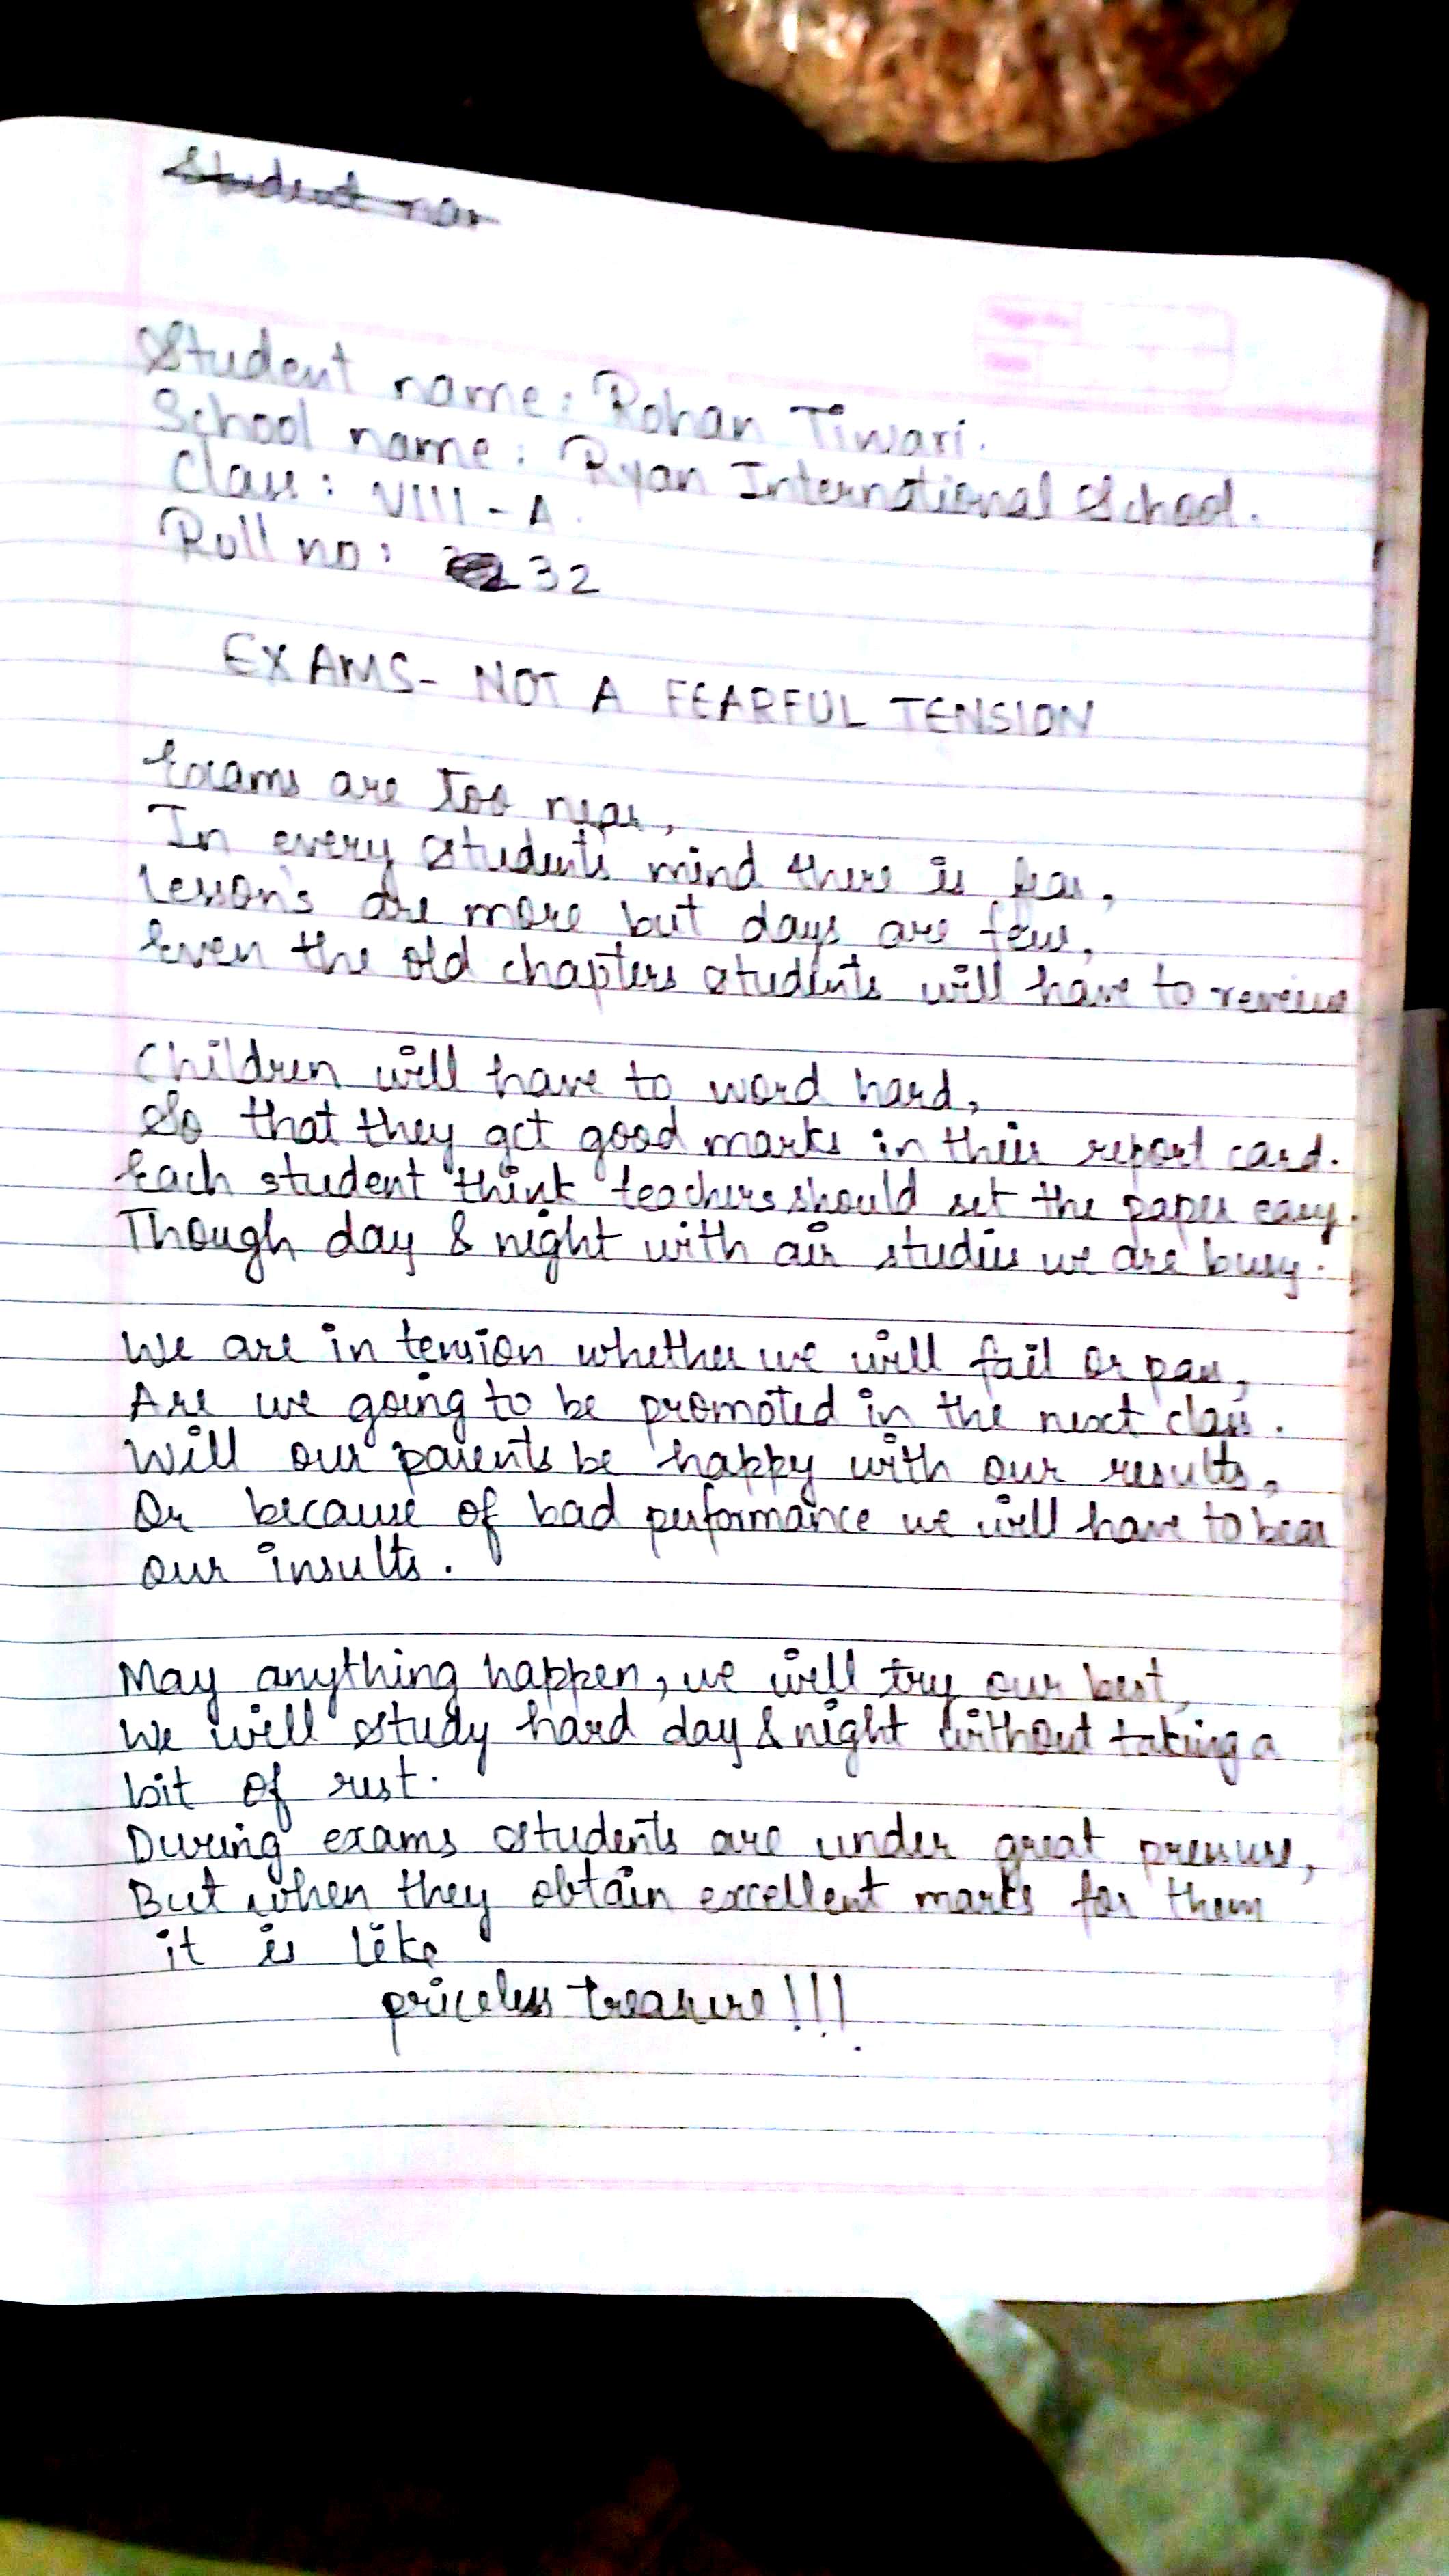 Student nam
Student name: Rohan Tiwari.
School name: Ryan International School.
Class: VIII - A.
Roll no: 32
EXAMS- NOT A FEARFUL TENSION
Exams are too near,
In every student's mind there is fear,
Lesson's are more but days are few,
Even the old chapters students will have to reveiw
Children will have to word hard,
So that they get good marks in their report card.
Each student think teachers should set the paper easy.
Though day & night with air studies we are busy.
We are in tension whether we will fail or pass,
Are we going to be promoted in the next class.
Will our parents be happy with our results,
Or because of bad performance we will have to bear
our insults.
May anything happen, we will try our best,
We will study hard day & night without taking a
bit of rest.
During exams students are under great pressure,
But when they obtain excellent marks for them
it is like
priceless treasure!!!